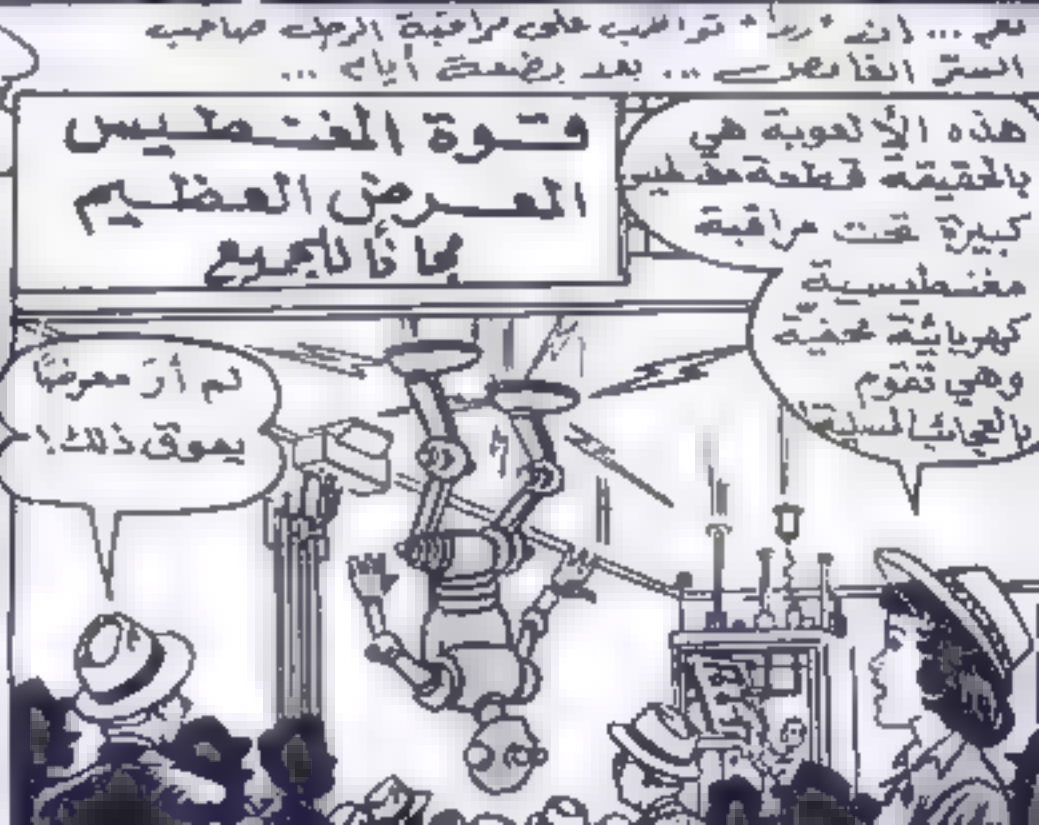 نعم ... ان "ريا" تواظب على مراقبة الرجل صاحب
السترّ الغامض ... بعد بضعة أيام ...
قوة المغنطيس
العرض العظيم
مجانًا للجميع
هذه الألعوبة هي
بالحقيقة قطعة مغنطيس
كبيرة تحت مراقبة
مغنطيسية
كهربائية مخفية
وهي تقوم
بالعجائب المسلية!
لم أرَ معرضًا
يفوق ذلك!